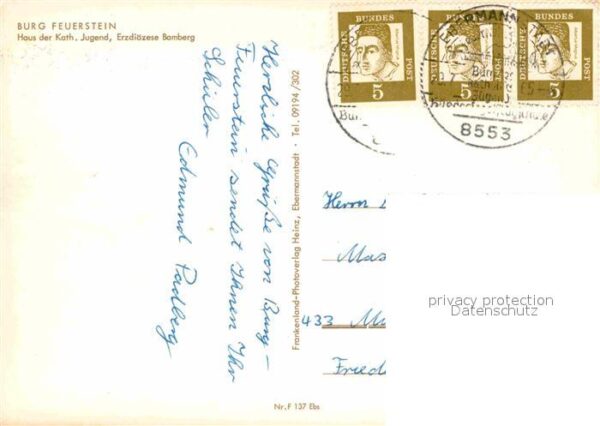 BURG FEUERSTEIN
Haus der Kath. Jugend, Erzdiözese Bamberg
Herzliche Grüße von Burg-
Feuerstein sendet Ihnen Ihr
Schüler
Edmund Padberg
Frankenland-Photoverlag Heinz, Ebermannstadt · Tel. 09194/302
Nr. F 137 Ebs
DEUTSCHE BUNDES POST 5
DEUTSCHE BUNDES POST 5
DEUTSCHE BUNDES POST 5
8553
Herrn
433
Fried
privacy protection
Datenschutz